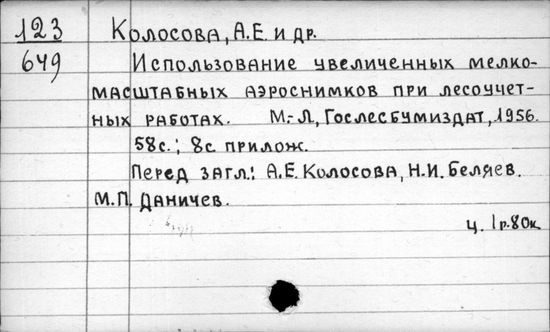 123 Колосова, А.Е. и др.
649 Использование увеличенных мелко-
масштабных аэроснимков при лесоучет-
ных работах. М.-Л, Гослесбумиздат, 1956.
58с.; 8с. прилож.
Перед загл.: А.Е. Колосова, Н.И. Беляев.
М.П. Даничев.
ц. 1р.80к